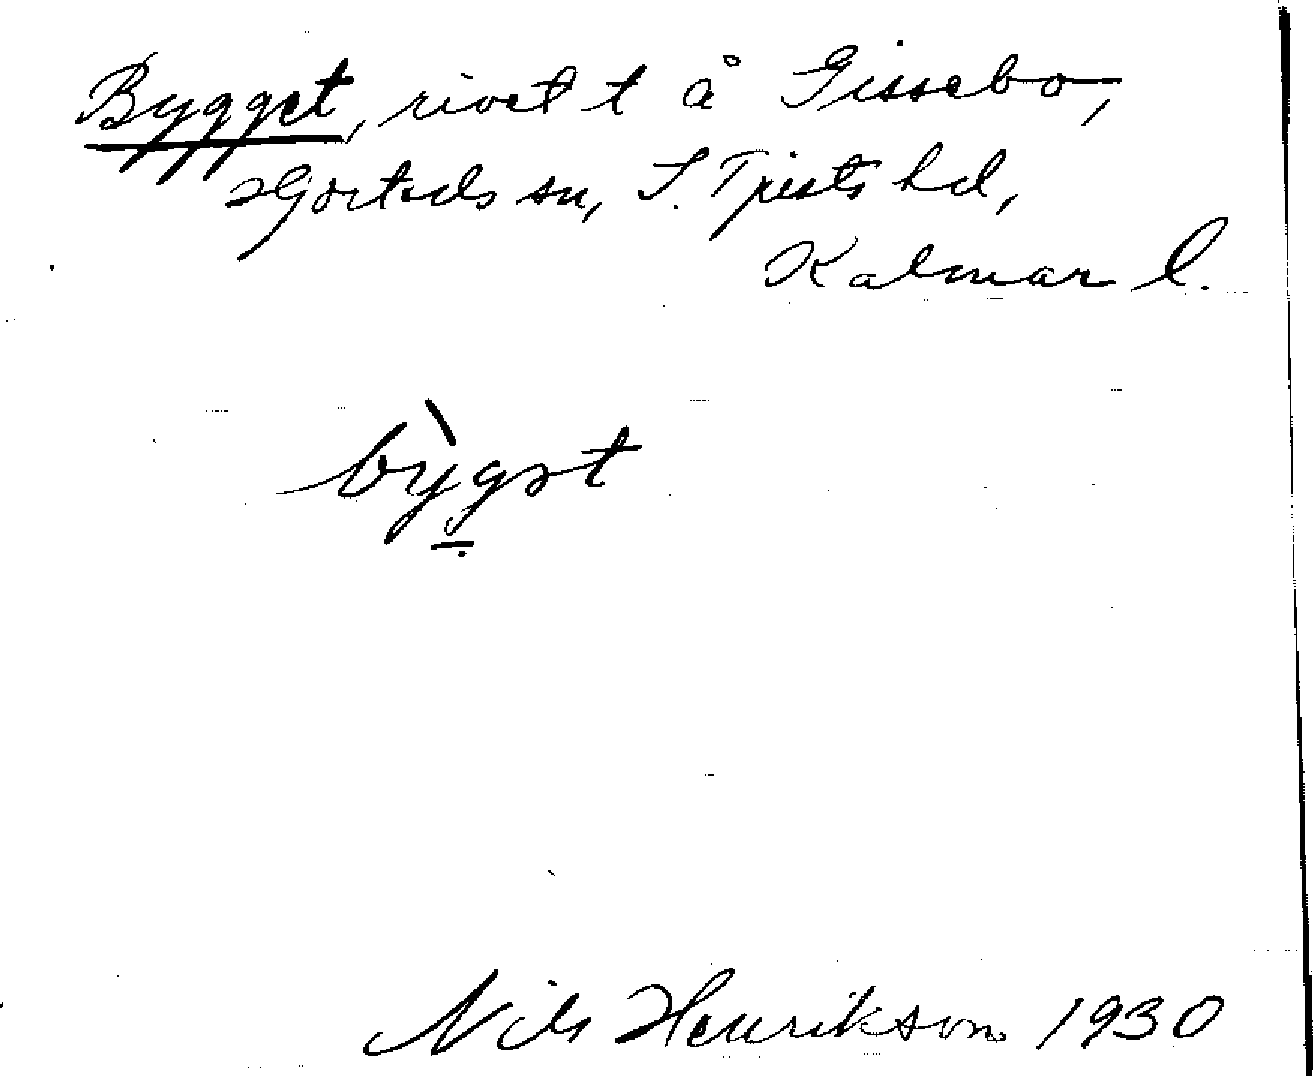 Bygget, rivet t å Gissebo,
Hjorteds sn, S. Tjusts hd,
Kalmar l.
bỳ̠gət
Nils Henrikson 1930